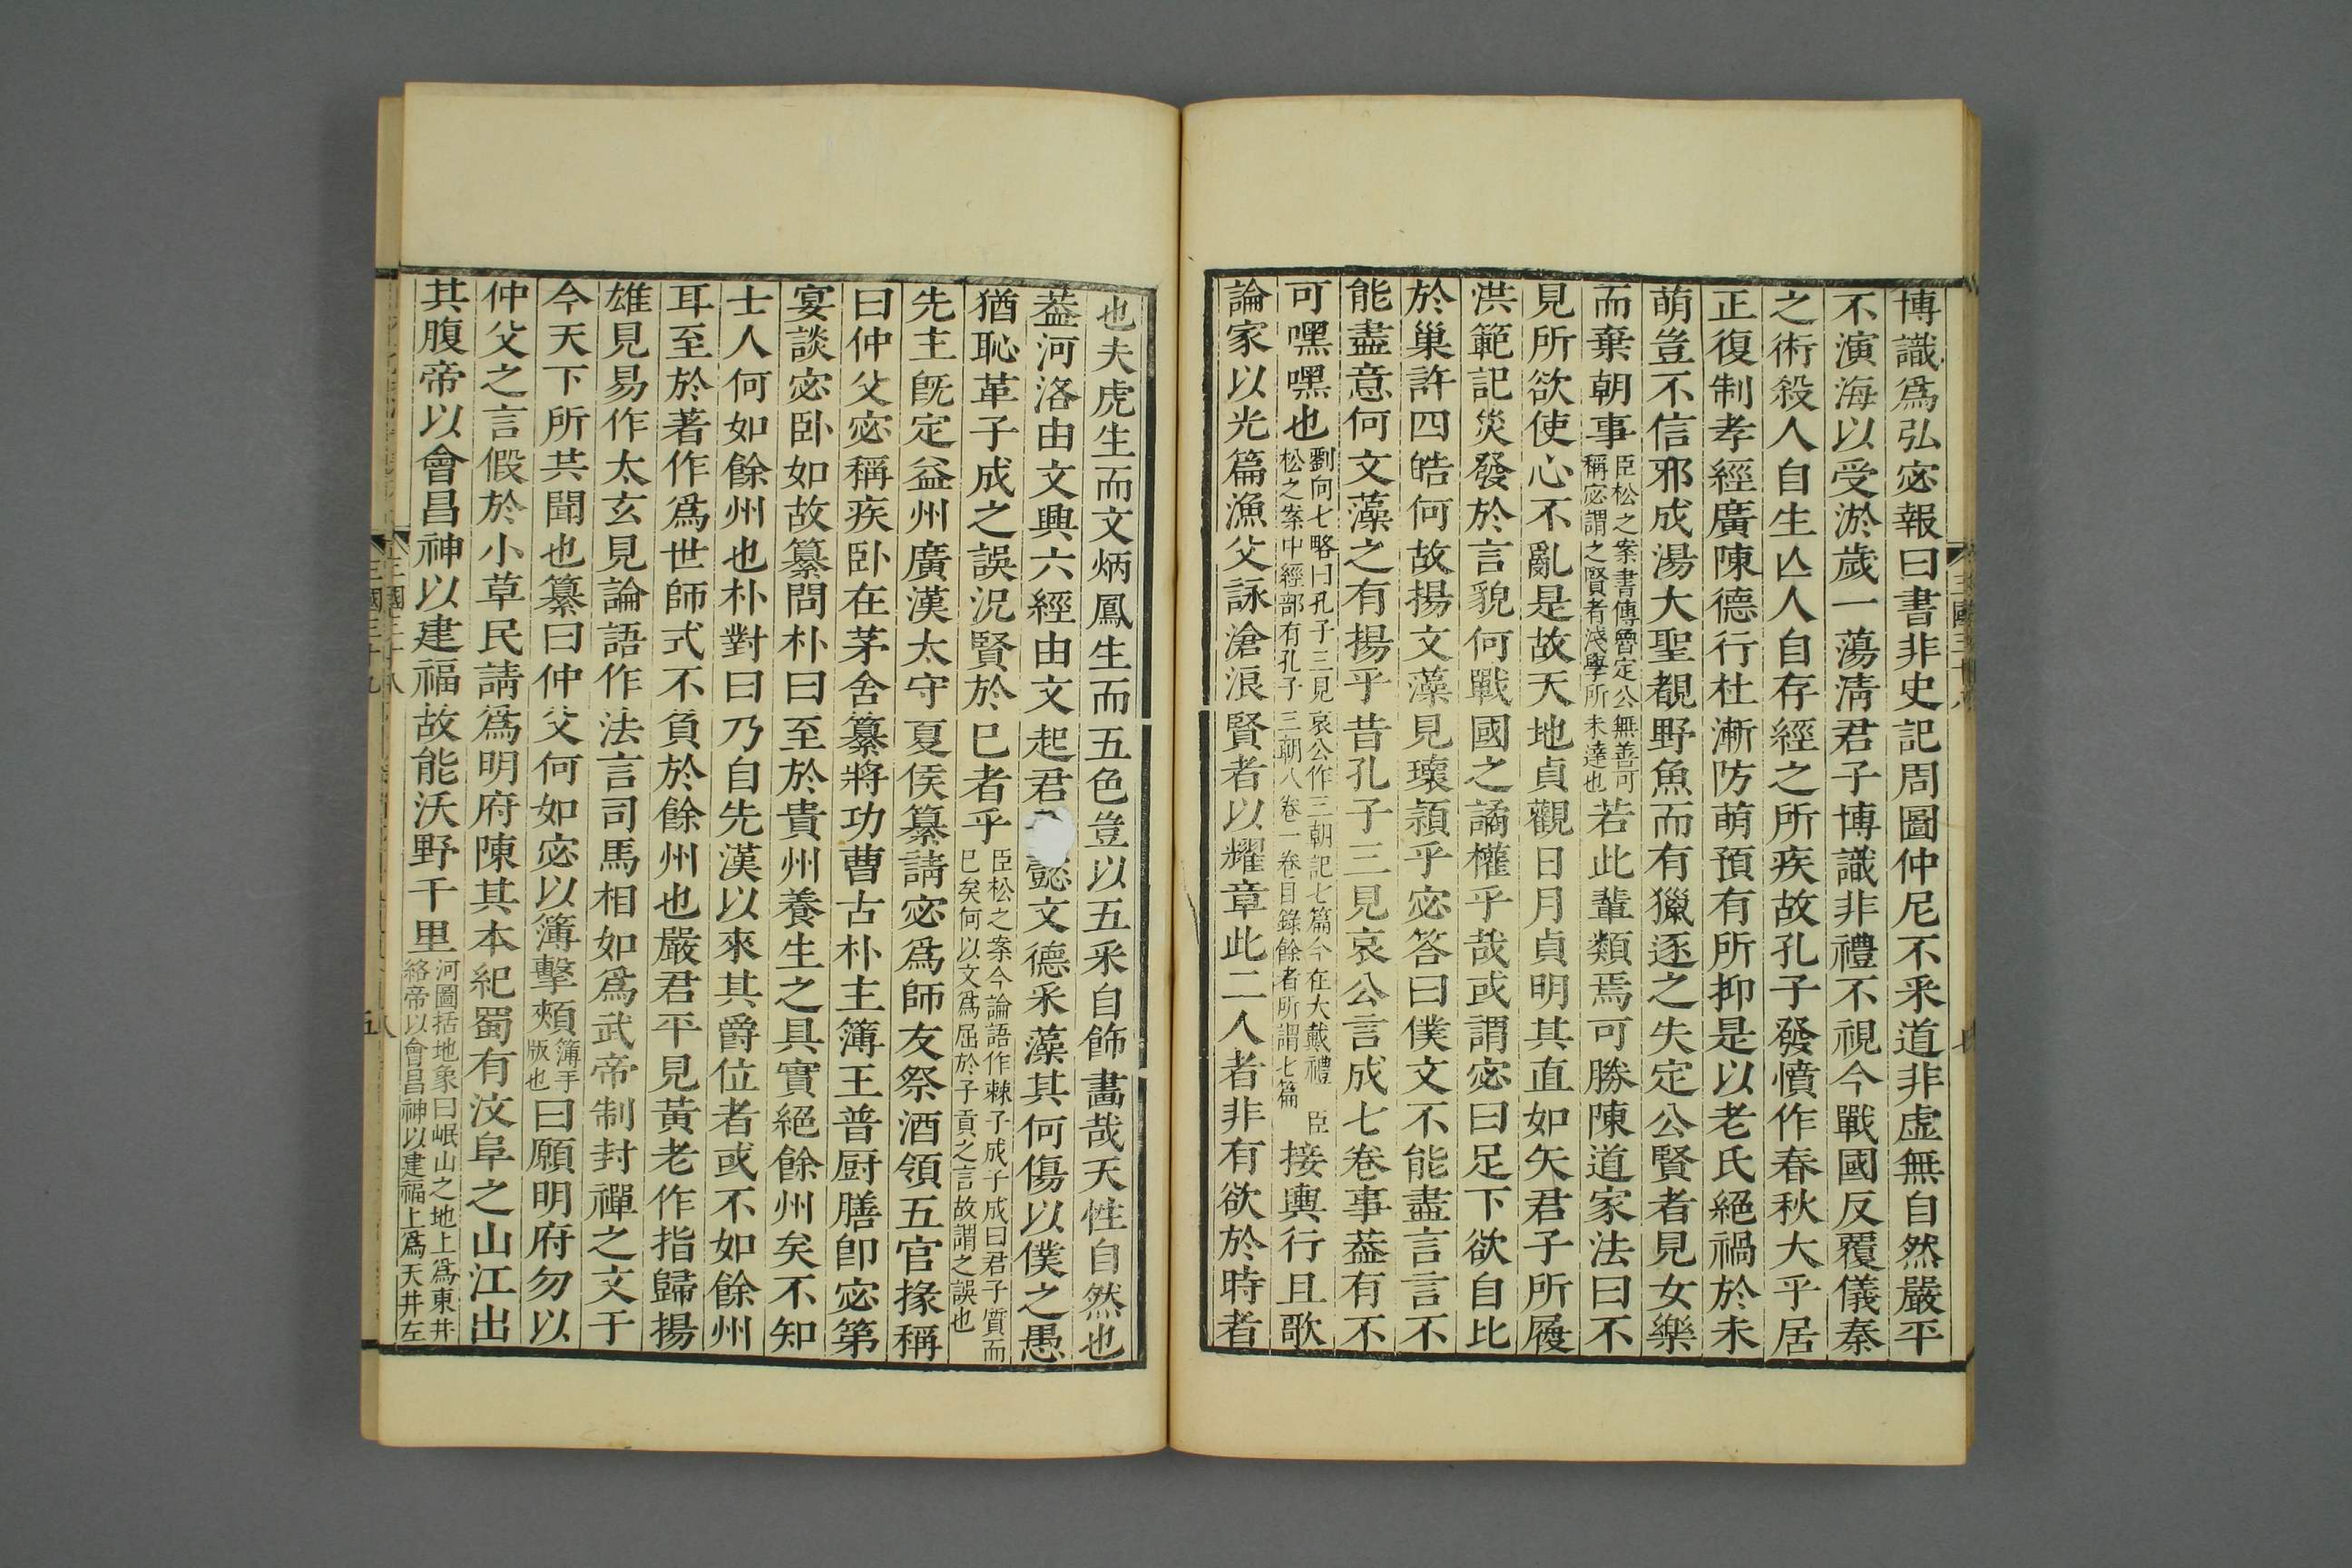 博識爲弘宓報曰書非史記周圖仲尼不采道非虛無自然嚴平
不演海以受淤歲一蕩淸君子博識非禮不視今戰國反覆儀秦
之術殺人自生亾人自存經之所疾故孔子發憤作春秋大乎居
正復制孝經廣陳德行杜漸防萌預有所抑是以老氏絕禍於未
萌豈不信邪成湯大聖覩野魚而有獵逐之失定公賢者見女樂
而棄朝事臣松之案書傳魯定公無善可稱宓謂之賢者淺學所未達也若此輩類焉可勝陳道家法曰不
見所欲使心不亂是故天地貞觀日月貞明其直如矢君子所履
洪範記災發於言貌何戰國之譎權乎哉或謂宓曰足下欲自比
於巢許四皓何故揚文藻見瓌穎乎宓答曰僕文不能盡言言不
能盡意何文藻之有揚乎昔孔子三見哀公言成七卷事葢有不
可嘿嘿也劉向七略曰孔子三見哀公作三朝記七篇今在大戴禮臣松之案中經部有孔子三朝八卷一卷目錄餘者所謂七篇接輿行且歌
論家以光篇漁父詠滄浪賢者以耀章此二人者非有欲於時者
也夫虎生而文炳鳳生而五色豈以五采自飾畫哉天性自然也
葢河洛由文興六經由文起君懿文德采藻其何傷以僕之愚
猶恥革子成之誤況賢於已者乎臣松之案今論語作棘子成子成曰君子質而已矣何以文爲屈於子貢之言故謂之誤也
先主旣定益州廣漢太守夏侯纂請宓爲師友祭酒領五官掾稱
曰仲父宓稱疾臥在茅舍纂將功曹古朴主簿王普廚膳卽宓第
宴談宓臥如故纂問朴曰至於貴州養生之具實絕餘州矣不知
士人何如餘州也朴對曰乃自先漢以來其爵位者或不如餘州
耳至於著作爲世師式不負於餘州也嚴君平見黃老作指歸揚
雄見易作太玄見論語作法言司馬相如爲武帝制封禪之文于
今天下所共聞也纂曰仲父何如宓以簿擊頰簿手版也曰願明府勿以
仲父之言假於小草民請爲明府陳其本紀蜀有汶阜之山江出
其腹帝以會昌神以建福故能沃野千里河圖括地象曰岷山之地上爲東井絡帝以會昌神以建福上爲天井左